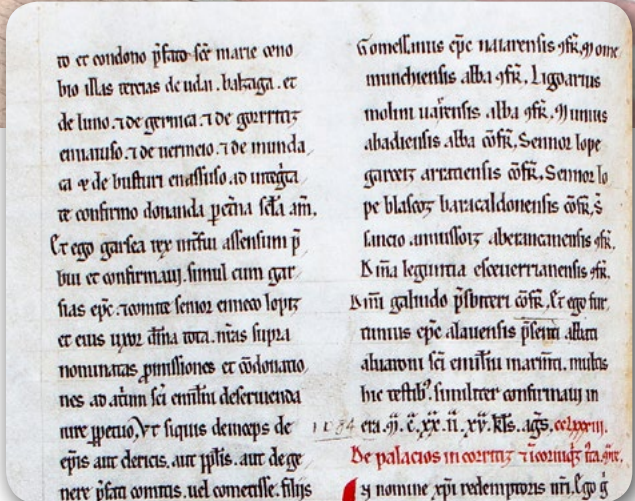 to et condono p̄fato sc̄e marie ceno
bio illas tercias de udai. baḱaga. et
de luno. ⁊ de gernica. ⁊ de gorritiz
⁊ de vermeio. ⁊ de munda
ca ⁊ de busturi ad integ̃
te confirmo donanda ꝑ et̃na scła am̄.
Et ego garsea rex assensum p̄
bui et confirmaui simul cum gar
sias ep̄c. ⁊ comite senior enneco lopiz
et eius uxor dn̄a tota. supra
nominatas ꝓmissiones et cōdonatio
nes ad sc̄i emiliani deseruienda
iure ꝑpetuo, Vt siquis deinceps de
ep̄is aut clericis. aut ppl̄is. aut de ge
nere p̄fati comitis. uel cometisse. filiis
Gomessanus ep̄c naiarensis ꝯfr̄. Mome
munchiensis abba ꝯfr̄. Ligoarius
abba ꝯfr̄. Munius
abadiensis abba cōfr̄. Sennor lope
garceiz arratiensis cōfr̄. Sennor lo
pe blascoz baracaldonensis cōfr̄. S
sancio ꝯfr̄.
Dn̄a leguntia ꝯfr̄.
Dn̄i galindo p̄sbiteri cōfr̄. Et ego for
tunius ep̄c alauensis p̄senti
aluaroni sc̄i emiliani multis
hic testib⁹. similiter confirmaui in
1084 era. M̄. c̄. xx. ii. xv. kl̄s. ag̃s, cclxxiii.
De palacios in corritiz
In nomine xp̄i redemptoris nr̄i. Ego g̃